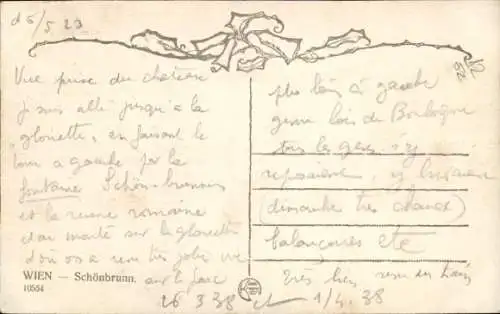 d 6/5 23
Vue prise du chateau
je suis allé jusqu'a la
"gloriette" en faisant le
tour a gauche par la
fontaine Schön-brunnen
et la ruine romaine
monté sur la gloriette
d'où on a une très jolie vue
sur le parc
WIEN — Schönbrunn.
10554
plus loin à gauche
genre bois de Boulogne
tous les gens s'y
reposaient, y
(dimanche très chaud)
balançoires etc
très bien
26 3 38 et 1/4.38